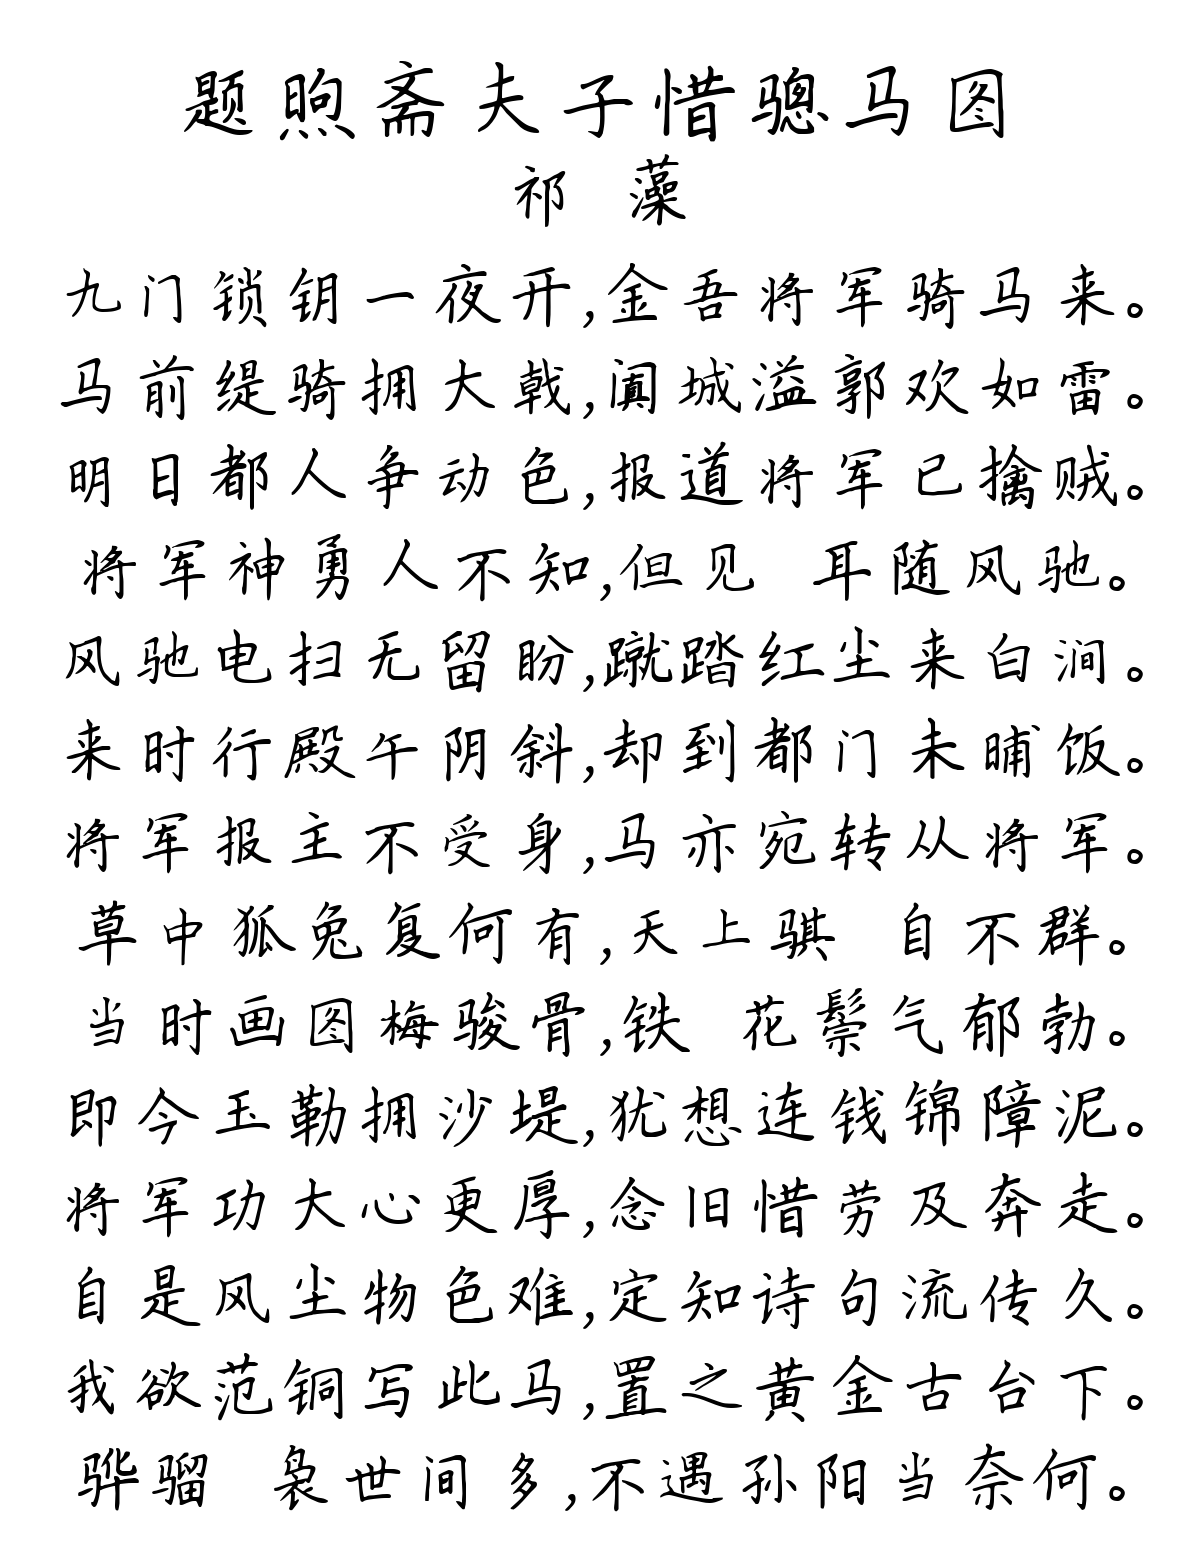 题煦斋夫子惜骢马图
祁 藻
九门锁钥一夜开,金吾将军骑马来。
马前缇骑拥大戟,阗城溢郭欢如雷。
明日都人争动色,报道将军已擒贼。
将军神勇人不知,但见 耳随风驰。
风驰电扫无留盼,蹴踏红尘来白涧。
来时行殿午阴斜,却到都门未晡饭。
将军报主不受身,马亦宛转从将军。
草中狐兔复何有,天上骐 自不群。
当时画图梅骏骨,铁 花鬃气郁勃。
即今玉勒拥沙堤,犹想连钱锦障泥。
将军功大心更厚,念旧惜劳及奔走。
自是风尘物色难,定知诗句流传久。
我欲范铜写此马,置之黄金古台下。
骅骝 袅世间多,不遇孙阳当奈何。